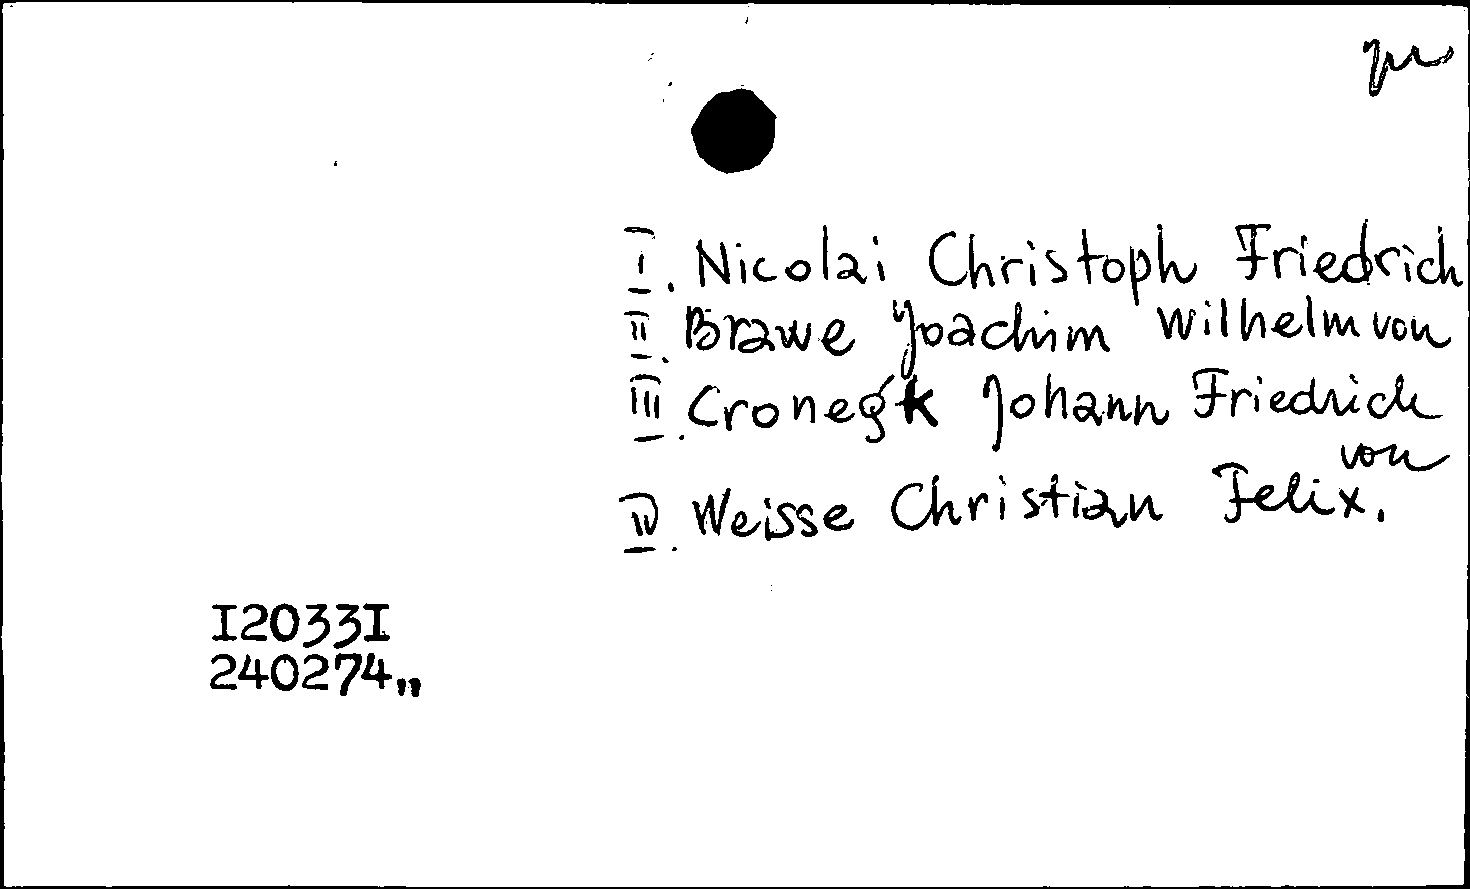 I. Nicolai Christoph Friedrich
II. Brawe Joachim Wilhelm von
III. Cronegk Johann Friedrich
von
IV. Weisse Christian Felix.
I2033I
240274,,